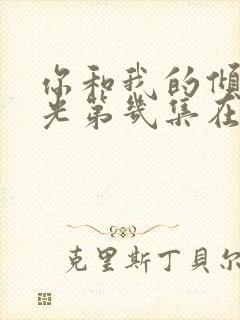 你和我的倾
光第几集在
克里斯丁贝尔